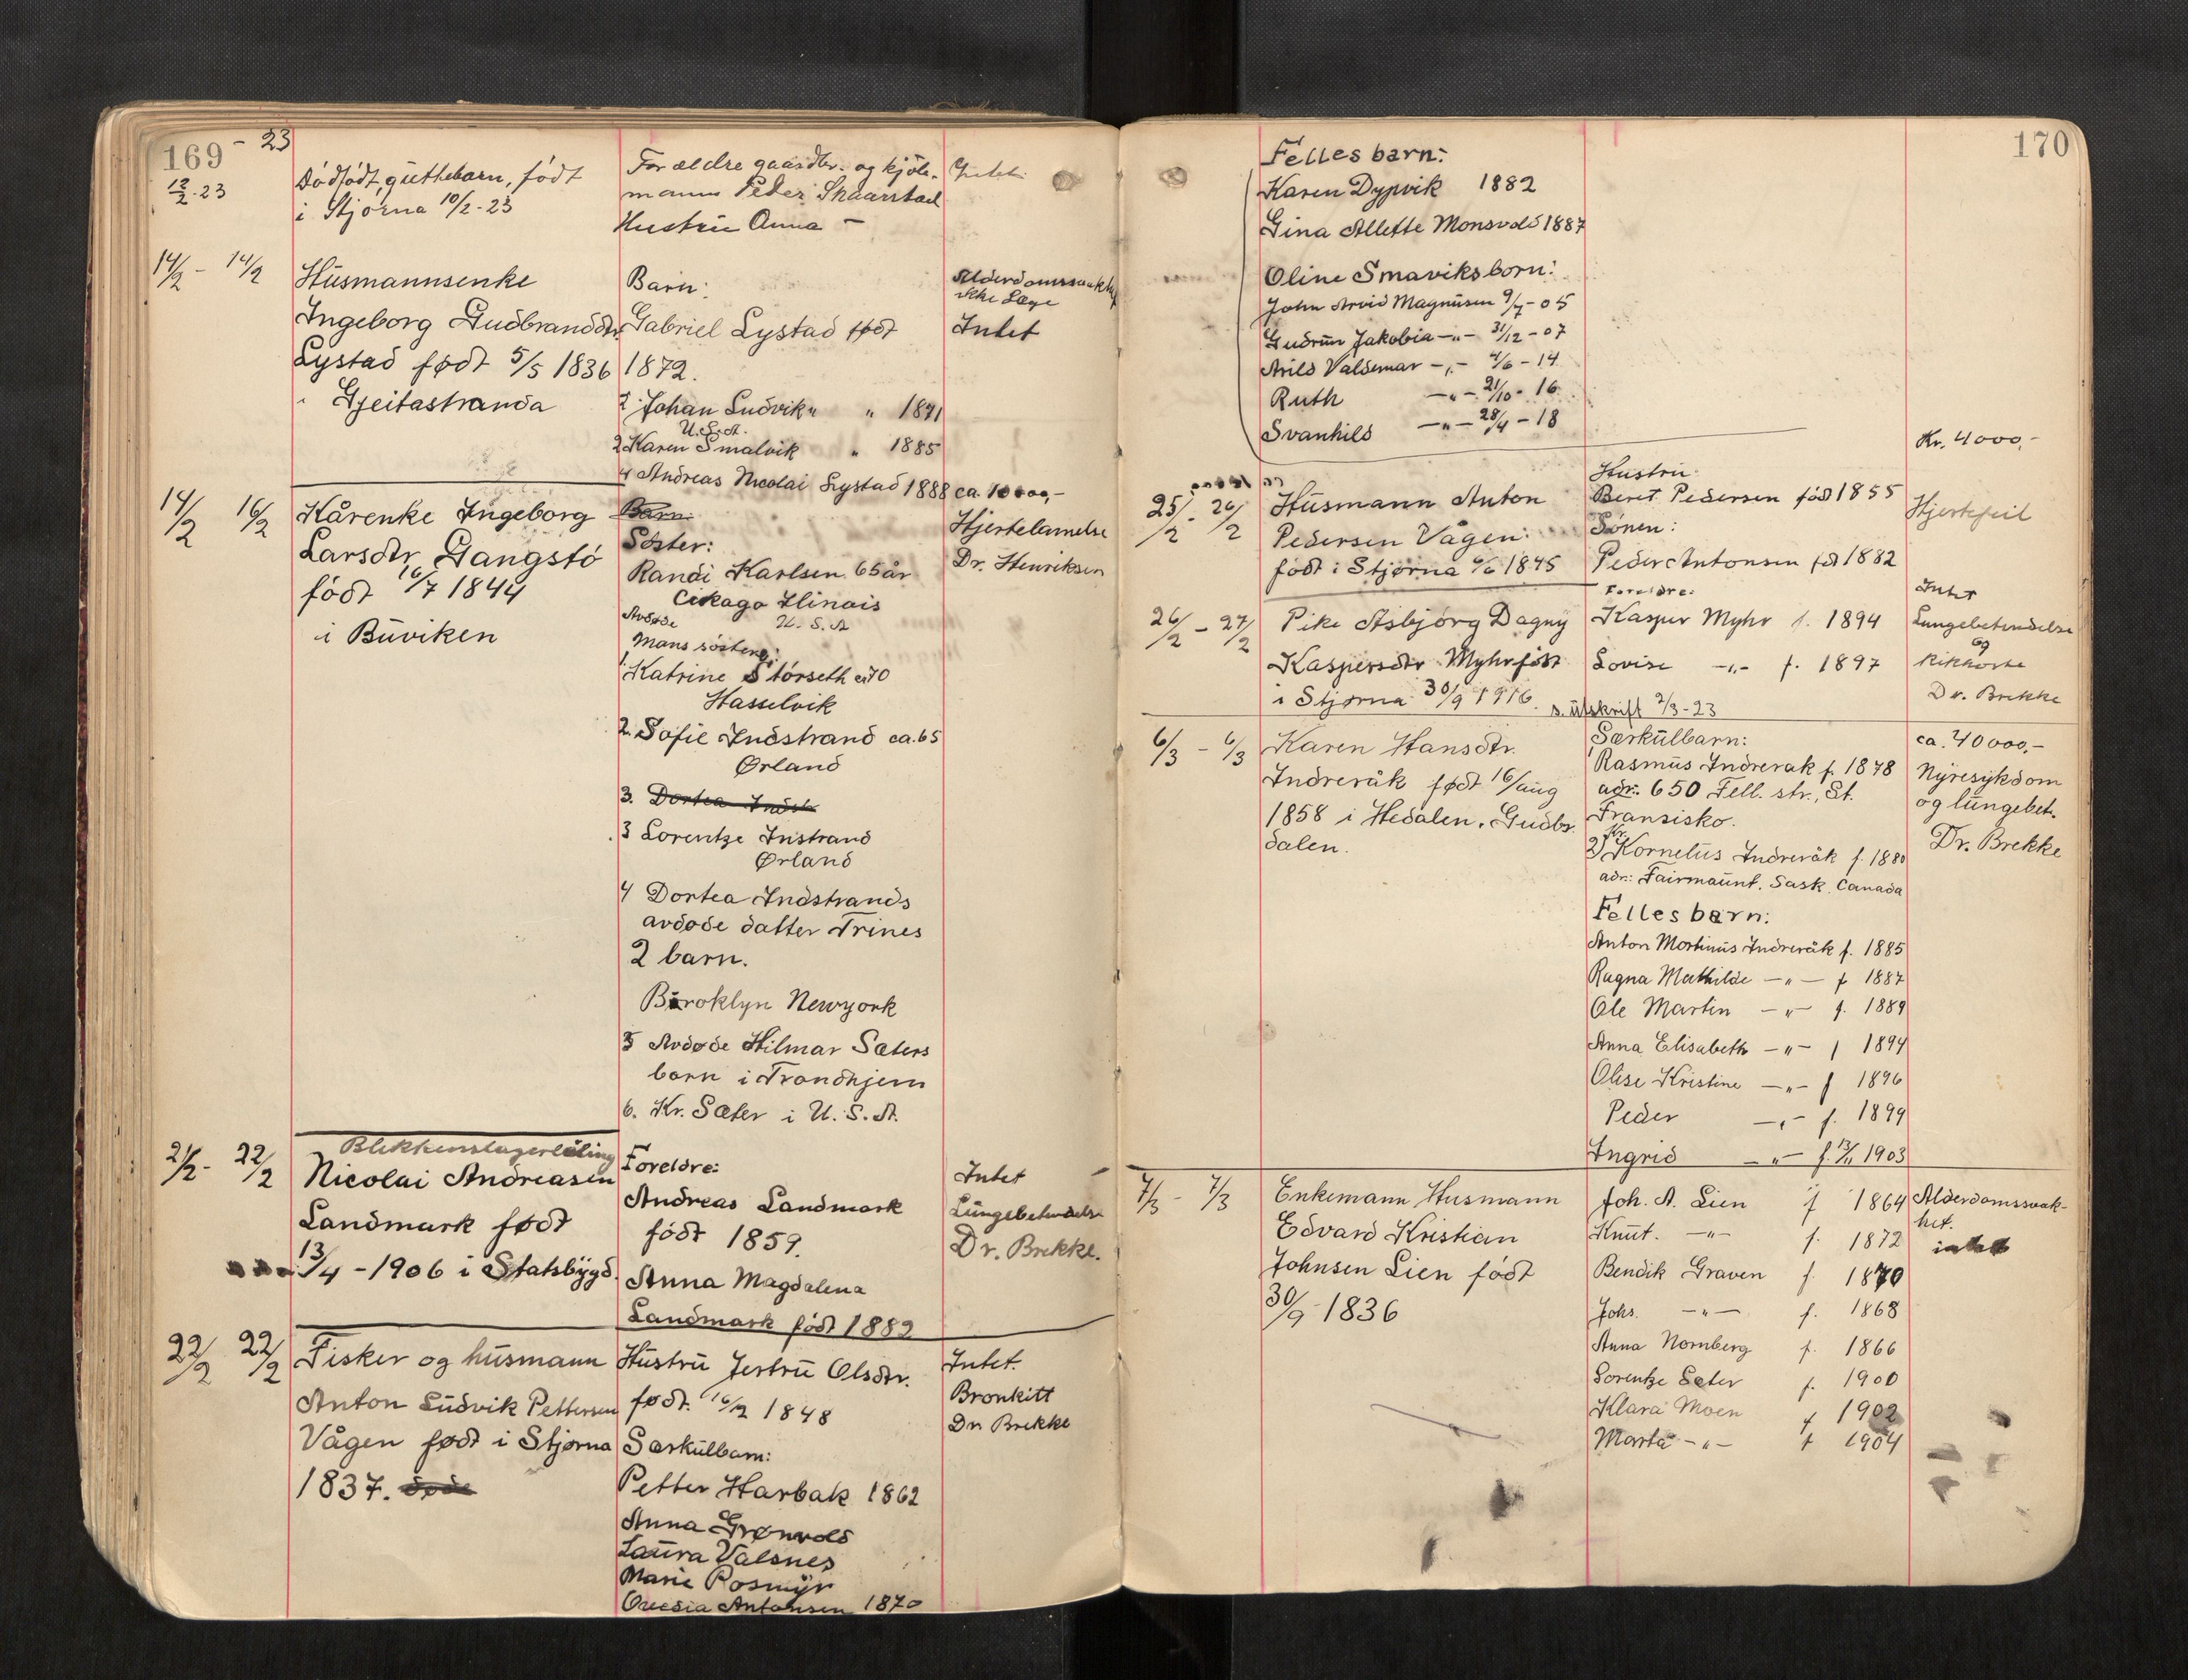 169 - 23
12/2.23
Dødfødt guttebarn, født
i Stjørna 10/2-23
Foreldre gaardbr. og kjøb-
mann Peder Skaarstad
Hustru Anna -
Intet
14/2 - 14/2
Husmannsenke
Ingeborg Gudbrandsdtr
Lystad født 5/5 1836
Geitastranda
Barn:
Gabriel Lystad født
1872.
2 Johan Ludvik " " 1891
U.S.A.
2 Karen Smalvik " 1885
4 Andreas Nicolai Lystad 1888
Alderdomssvakh
Ikke læge
Intet
14/2 16/2
Kårenke Ingeborg
Larsdtr Gangstø
født 16/7 1844
i Buviken
Barn
Søster:
Randi Karlsen 65 år
Cikago Ilinais
U.S.A
Avdøde
Mans søsteng:
1. Katrine Størseth ca 70
Hasselvik
2. Sofie Indstrand ca. 65
Ørland
3. Dortea Indst
3 Lorentze Instrand
Ørland
4 Dortea Indstrands
avdøde datter Trines
2 barn.
Buroklyn Newyork
5 Avdøde Hilmar Sæters
born i Trondhjem
6. Kr. Sæter i U.S.A.
ca. 10 000,-
Hjertelammelse
Dr. Henriksen
21/2. 22/2
Blikkenslagerlæling
Nicolai Andreasen
Landmark født
13/4 - 1906 i Stadsbygd.
Foreldre:
Andreas Landmark
født 1859.
Anna Magdalena
Landmark født 1882
Intet
Lungebetendelse
Dr. Brekke.
22/2 22/2
Fisker og husmann
Anton Ludvik Pettersen
Vågen født i Stjørna
1837. døde
Hustru Jertru Olsdtr.
født. 16/12 1848
Særkulbarn:
Petter Harbak 1862
Anna Grønvold
Laura Valsnes
Marie Rosmyr
Antonsen 1870
Intet.
Bronkitt
Dr Brekke
170
Felles barn:
Karen Dypvik 1882
Gina Allette Monsvold 1887
Oline Smaviks born:
John Arvid Magnusen 9/7-05
Gudrun Jakobia -"- 31/12-07
Arild Valdemar -"- 4/6-14
Ruth -"- 21/10-16
Svanhild -"- 28/4-18
25/2. 26/2
Husmann Anton
Pedersen Vågen.
født i Stjørna 1845
Hustru
Beret Pedersen fød 1855
Sønen:
Peder Antonsen fød 1882
Kr. 4000,-
Hjertefeil
26/2 - 27/2
Pike Asbjørg Dagny
Kaspersdtr Myhr født
i Stjørna 30/9 1916.
Foreldre:
Kasper Myhr f. 1894
Lovise -"- f. 1897
s. utskrift 2/3-23
Intet
Lungebetendelse
og
kikhoste
Dr. Brekke
6/3 - 6/3
Karen Hansdtr.
Indreråk født 16/aug
1858 i Hedalen, Gudbr.
dalen.
Særkulbarn:
Rasmus Indrerak f. 1878
adr. 650 Fell. str., St.
Fransisko.
2) Kornelus Indreråk f. 1880
adr: Fairmaunt, Sask. Canada
Felles barn:
Anton Mortinus Indreråk f. 1885
Ragna Mathilde -"- f 1887
Ole Martin -"- f. 1889
Anna Elisabeth -"- f 1894
Olise Kristine -"- f 1896
Peder -"- f. 1899
Ingrid -"- f. 1903
ca. 40 000,-
Nyresykdom
og lungebet.
Dr. Brekke
7/3 - 7/3
Enkemann Husmann
Edvard Kristian
Johnsen Lien født
30/9 1836
Joh. A. Lien f 1864
Knut. -"- f. 1872
Bendik Graven f. 1870
Johs. -"- f. 1868
Anna Nornberg f. 1866
Lorentze Seter f. 1900
Klara Moen f 1902
Marta -"- f 1904
Alderdomssvak-
het.
intet